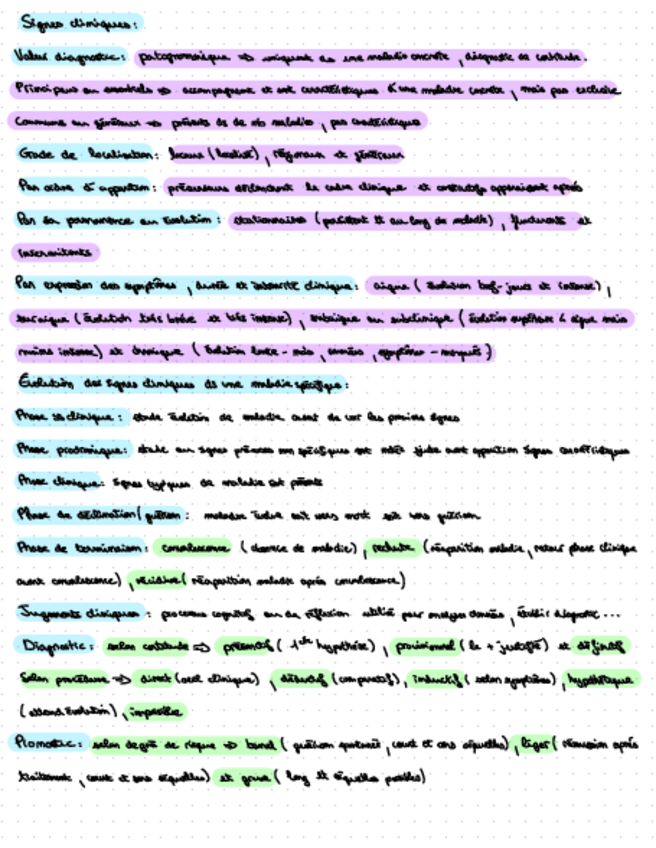 Signes cliniques :
Valeur diagnostic : patognomonique => uniquement de une maladie concrète, diagnostic de certitude.
Principaux ou essentiels => accompagnent et sont caractéristiques d'une maladie concrète, mais pas exclusive
Communs ou généraux => présents ds de nb maladies, pas caractéristiques
Grade de localisation : locaux (localisé), régionaux et généraux
Par ordre d'apparition : précurseurs déclenchent le cadre clinique et consécutifs apparaissent après
Par sa permanence ou évolution : stationnaires (persistent tt au long de maladie), fluctuants et
intermittents
Par expression des symptômes, durée et intensité clinique : aigue (évolution bref-jours et intense),
suraigue (évolution très brève et très intense), subaigue ou subclinique (évolution supérieure à aigue mais
moins intense) et chronique (évolution lente - mois, années, symptômes - marqués)
Évolution des signes cliniques ds une maladie spécifique :
Phase ss clinique : étude évolution de maladie avant de voir les premiers signes
Phase prodromique : signes précoces non spécifiques juste avant apparition signes caractéristiques
Phase clinique : signes typiques de maladie est présents
Phase de déclination/guérison : maladie évolue soit vers mort soit vers guérison
Phase de terminaison : convalescence (absence de maladie), rechute (réapparition maladie, retour phase clinique
avant convalescence), récidive (réapparition maladie après convalescence)
Jugements cliniques : processus cognitif ou de réflexion utilisé pour analyser données, établir diagnostic...
Diagnostic : selon certitude => présomptif (1ère hypothèse), provisionnel (le + justifié) et définitif
Selon procédure => direct (oeil clinique), déductif (comparatif), inductif (selon symptômes), hypothétique
(attend évolution), impossible
Pronostic : selon degré de risque => banal (guérison spontanée, court et sans séquelles), léger (rémission après
traitement, court et sans séquelles) et grave (long et séquelles possibles)